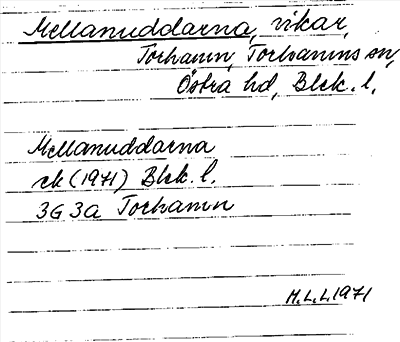 Mellanuddarna, vikar,
Torhamn, Torhamns sn,
Östra hd, Blek. l.
Mellanuddarna
ek (1971) Blek. l.
3G 3a Torhamn
H.L.L 1971